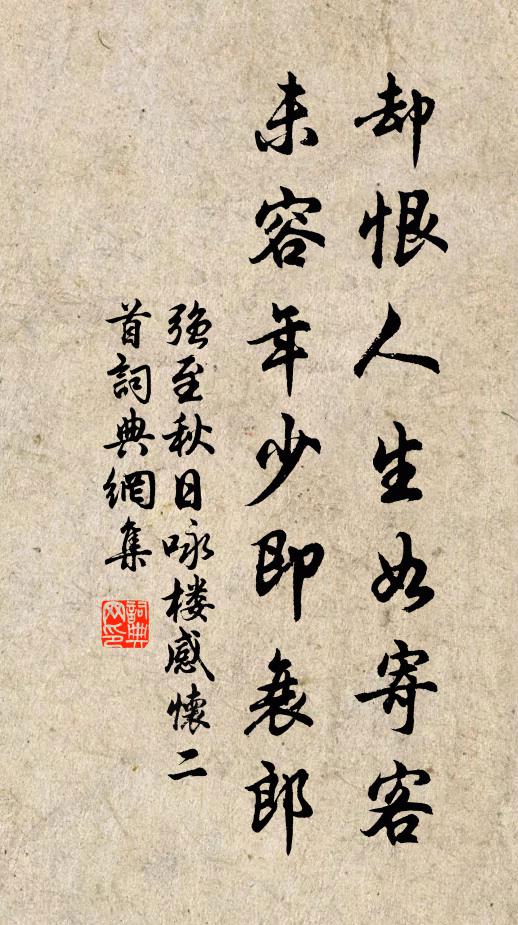 却恨人生如寄客
未容年少即衰郎
强至秋日咏楼感懷二
首詞典網集
詞典
网印